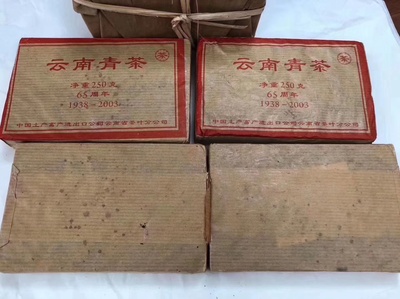 云南青茶 茶
净重250克
65周年
1938-2003
中国土产畜产进出口公司云南省茶叶分公司
云南青茶 茶
净重250克
65周年
1938-2003
中国土产畜产进出口公司云南省茶叶分公司